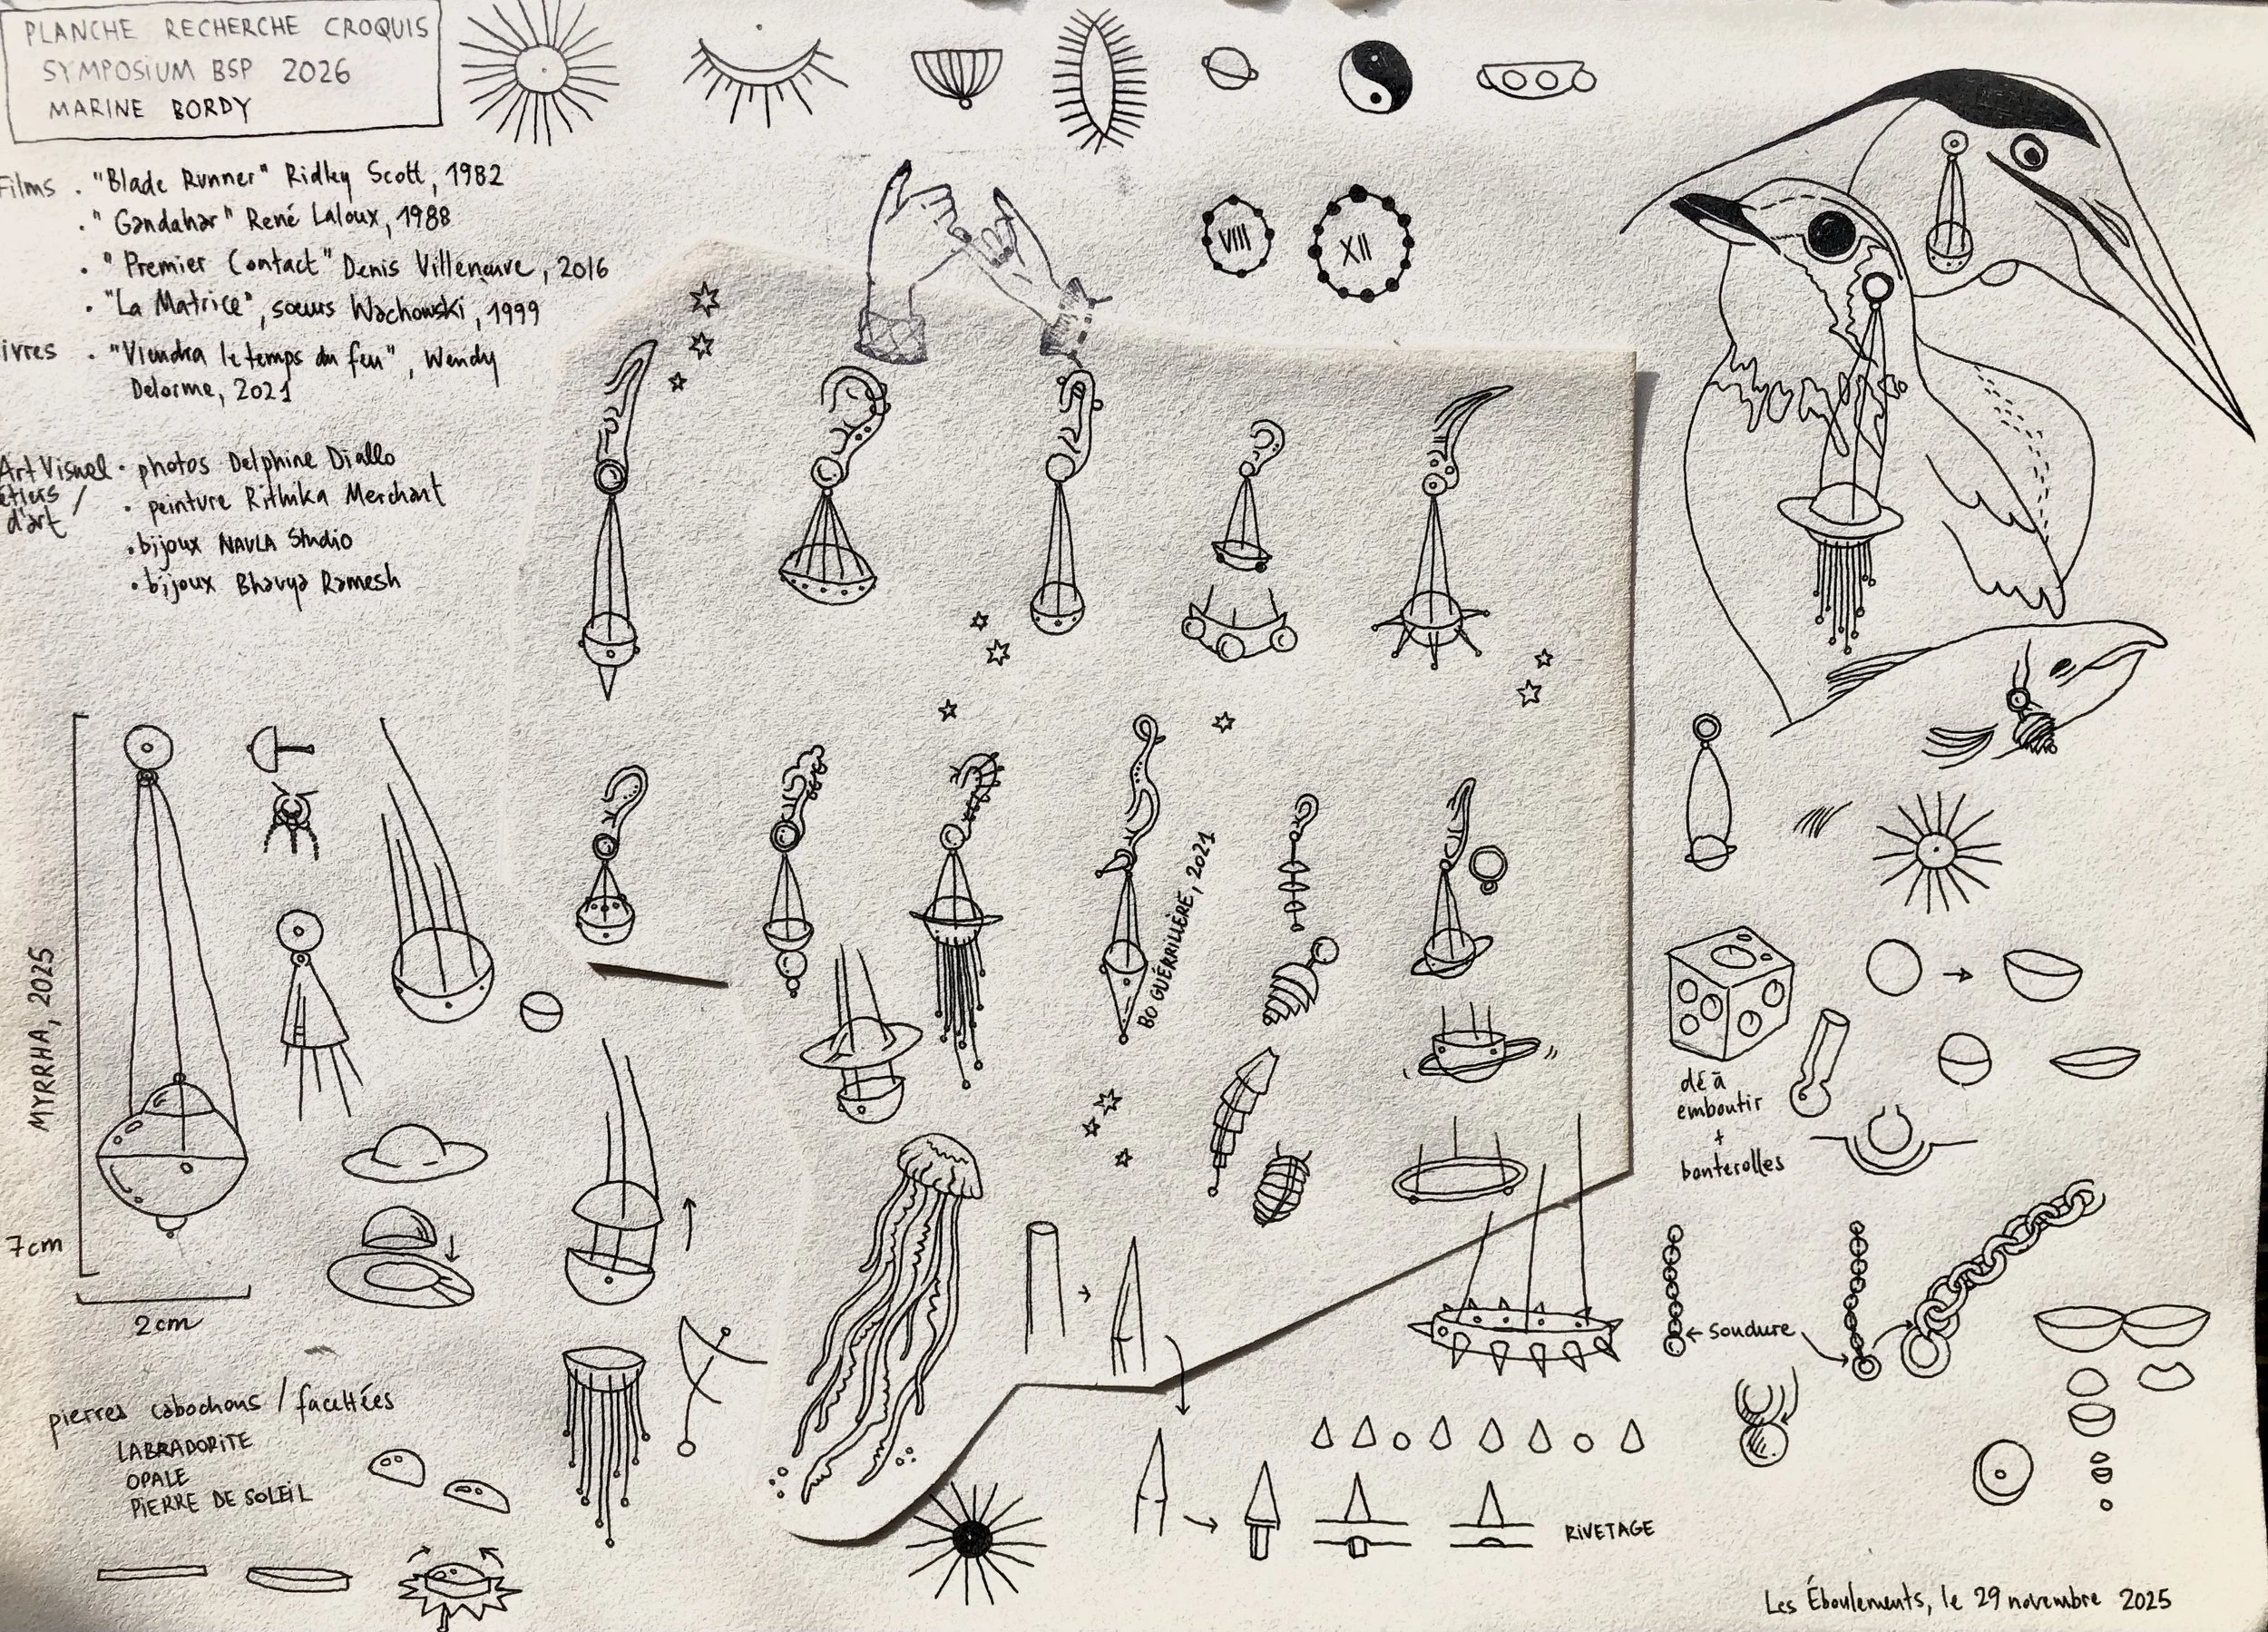 PLANCHE RECHERCHE CROQUIS
SYMPOSIUM BSP 2026
MARINE BORDY
Films . "Blade Runner" Ridley Scott, 1982
. "Gandahar" René Laloux, 1988
. "Premier Contact" Denis Villeneuve, 2016
. "La Matrice", sœurs Wachowski, 1999
ivres . "Viendra le temps du feu", Wendy
Delorme, 2021
Art Visuel • photos Delphine Diallo
étiers /
d'art
• peinture Rithika Merchant
• bijoux NAVLA Studio
• bijoux Bhavya Ramesh
VIII
XII
MYRRHA, 2025
7cm
2cm
BO GUÉRRILLÈRE, 2021
dé à
emboutir
+
bouterolles
← soudure
pierres cabochons / facettées
LABRADORITE
OPALE
PIERRE DE SOLEIL
RIVETAGE
Les Éboulements, le 29 novembre 2025